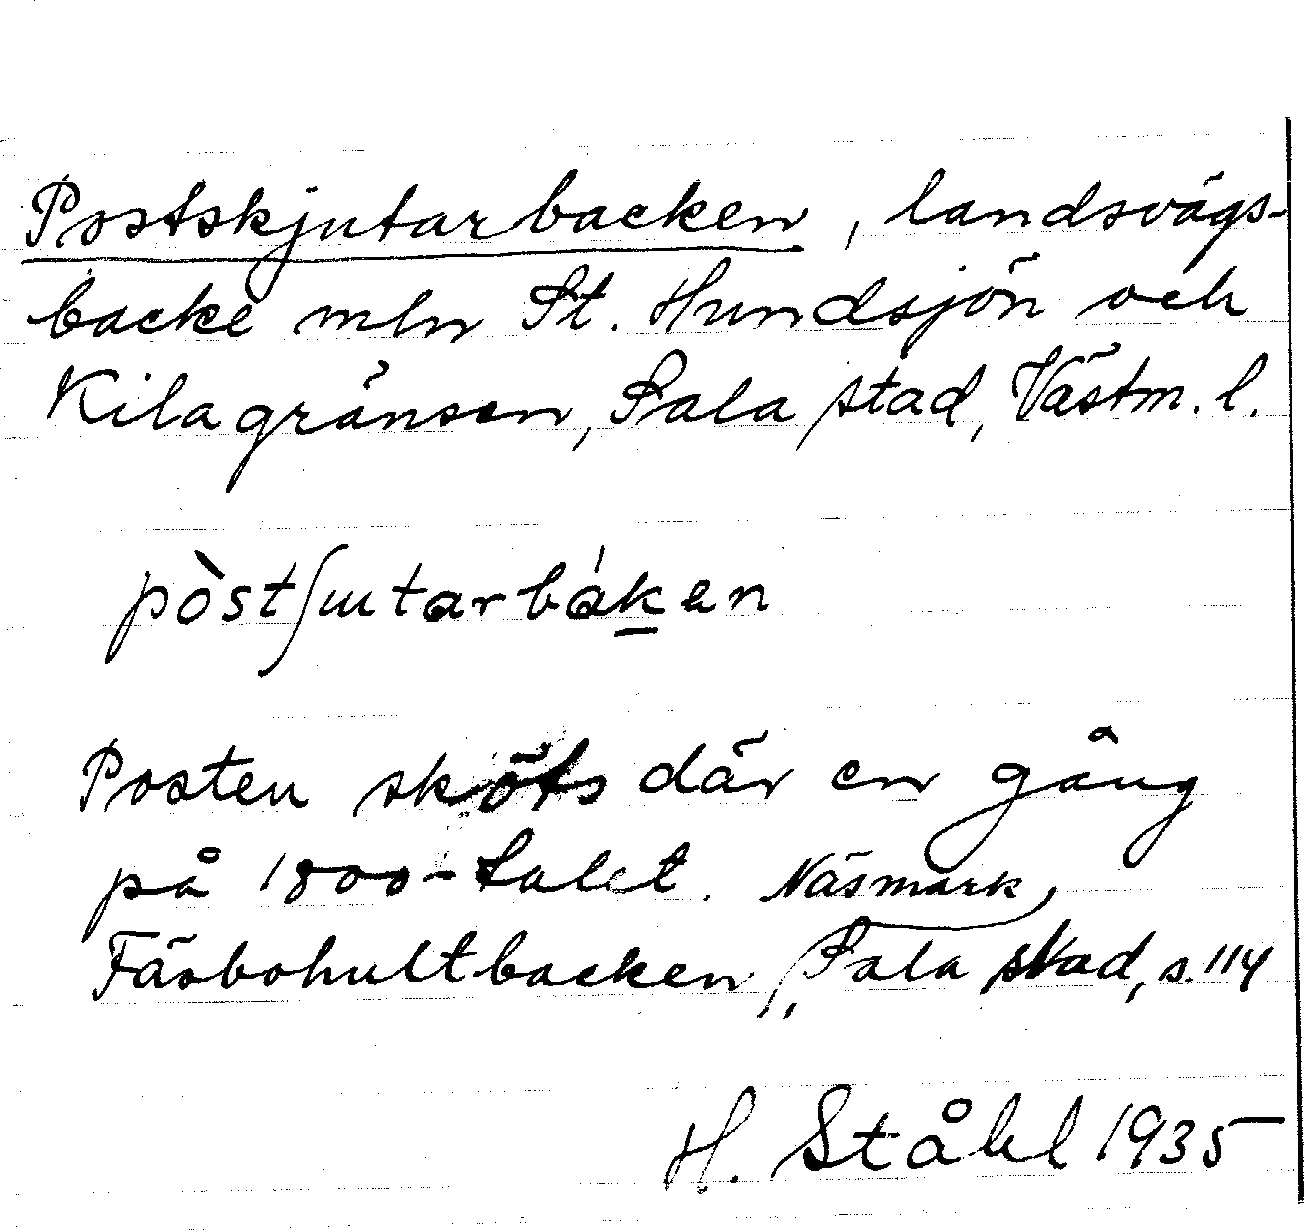 Postskjutarbacken, landsvägs-
backe mln St. Hundsjön och
Kilagränsen, Sala stad, Västm. l.
pòstʃɯtarbáḵen
Posten sköts där en gång
på 1800-talet. Näsmark,
Färbohultbacken, Sala stad, s. 114
H. Ståhl 1935